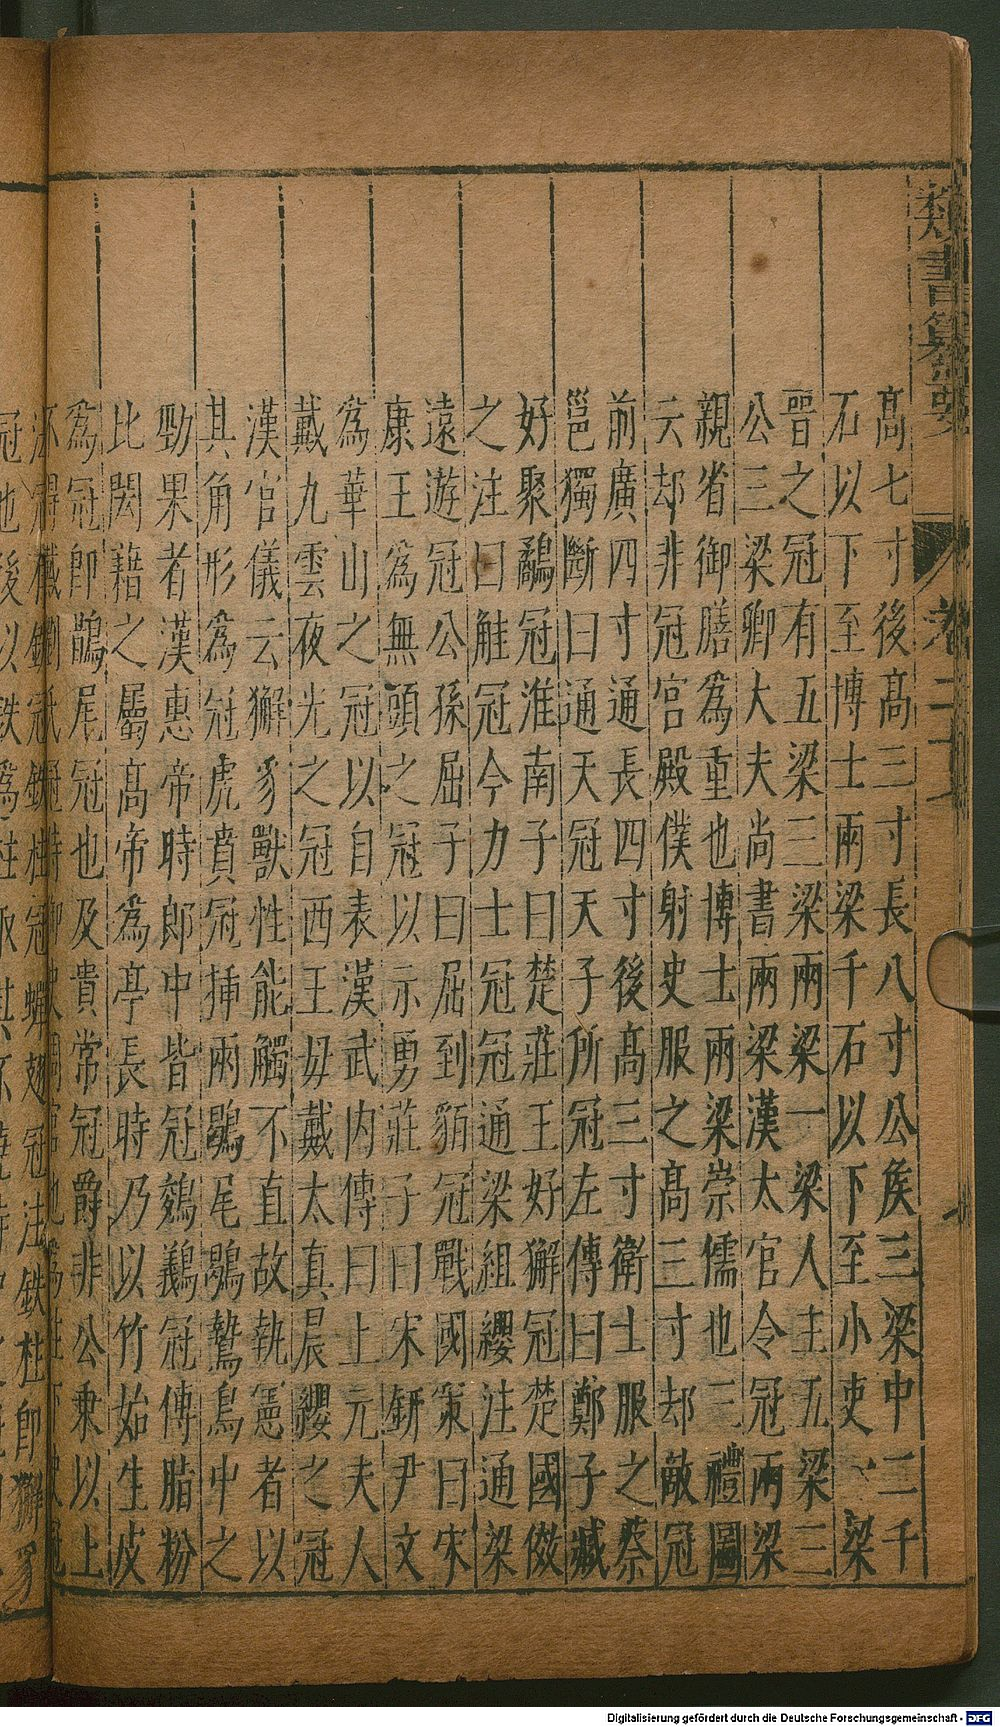 類書纂要
卷二十
高七寸後高三寸長八寸公侯三梁中二千
石以下至博士兩梁千石以下至小吏一梁
晉之冠有五梁三梁兩梁一梁人主五梁三
公三梁卿大夫尚書兩梁漢太官令冠兩梁
親省御膳爲重也博士兩梁崇儒也三禮圖
云却非冠宮殿僕射史服之高三寸却敵冠
前廣四寸通長四寸後高三寸衛士服之蔡
邕獨斷曰通天冠天子所冠左傳曰鄭子臧
好聚鷸冠淮南子曰楚莊王好獬冠楚國傚
之注曰觟冠今力士冠冠通梁組纓注通梁
遠遊冠公孫屈子曰屈到貊冠戰國策曰宋
康王爲無頭之冠以示勇莊子曰宋鈃尹文
爲華山之冠以自表漢武内傳曰上元夫人
戴九雲夜光之冠西王母戴太真晨纓之冠
漢官儀云獬豸獸性能觸不直故執憲者以
其角形爲冠虎賁冠挿兩鶡尾鶡鷙鳥中之
勁果者漢惠帝時郎中皆冠鵕鸃冠傳脂粉
比閎籍之屬高帝爲亭長時乃以竹始生皮
爲冠卽鵲尾冠也及貴常冠爵非公乗以上
法冠鐵冠鐵柱冠蟬翅冠法鉄柱卽獬豸
冠也後以鉄爲柱